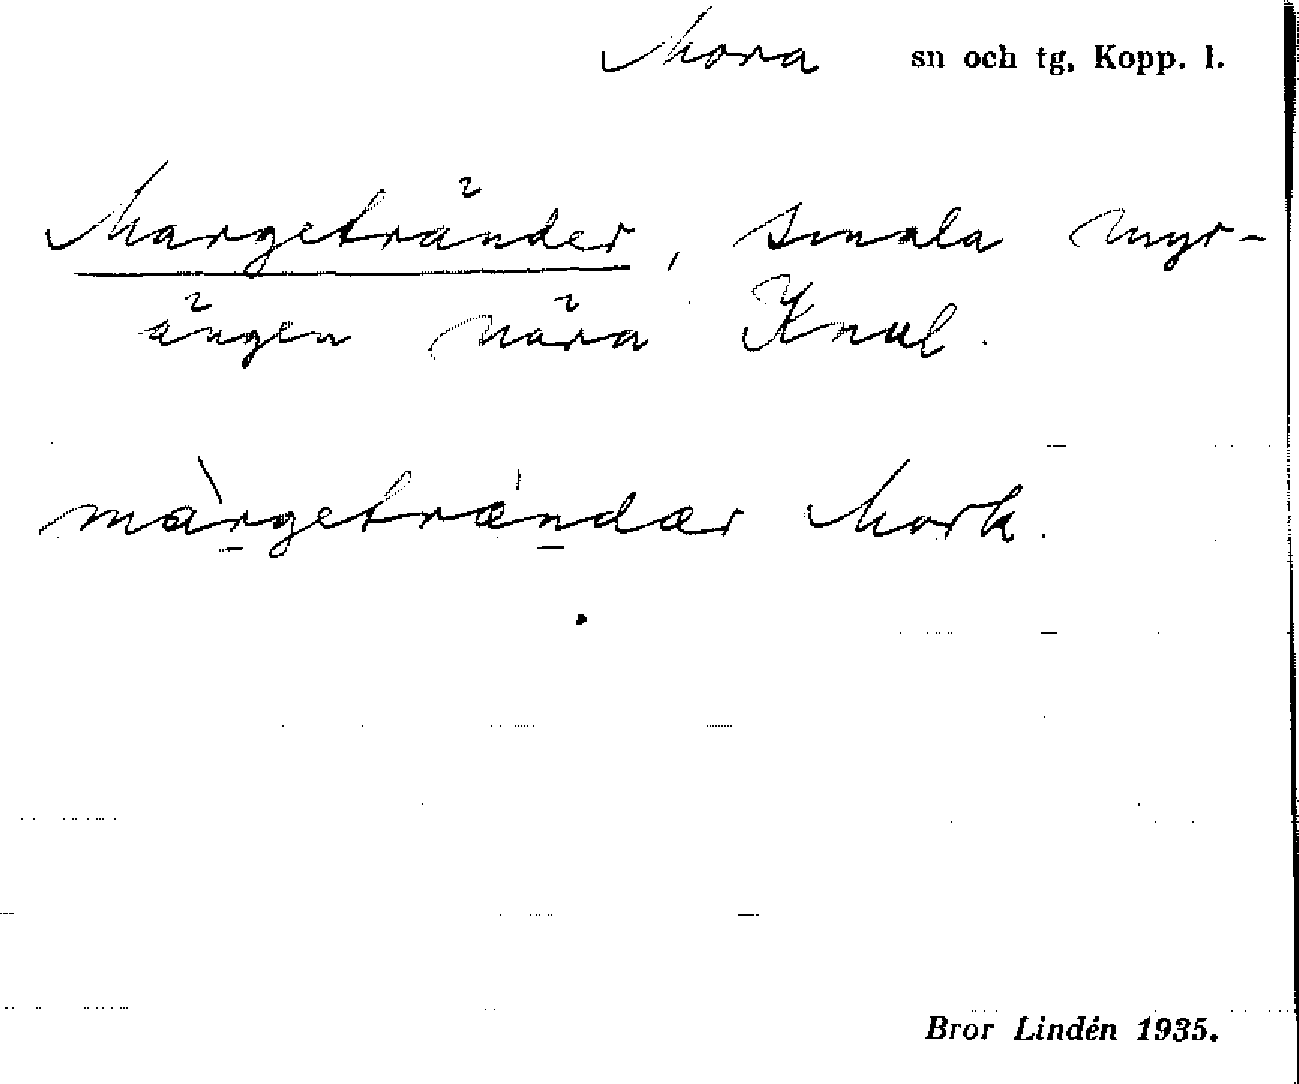 Mora sn och tg, Kopp. l.
Margetränder, smala myr-
ängen nära Knul.
màrgetrǽndær Mork.
Bror Lindén 1935.